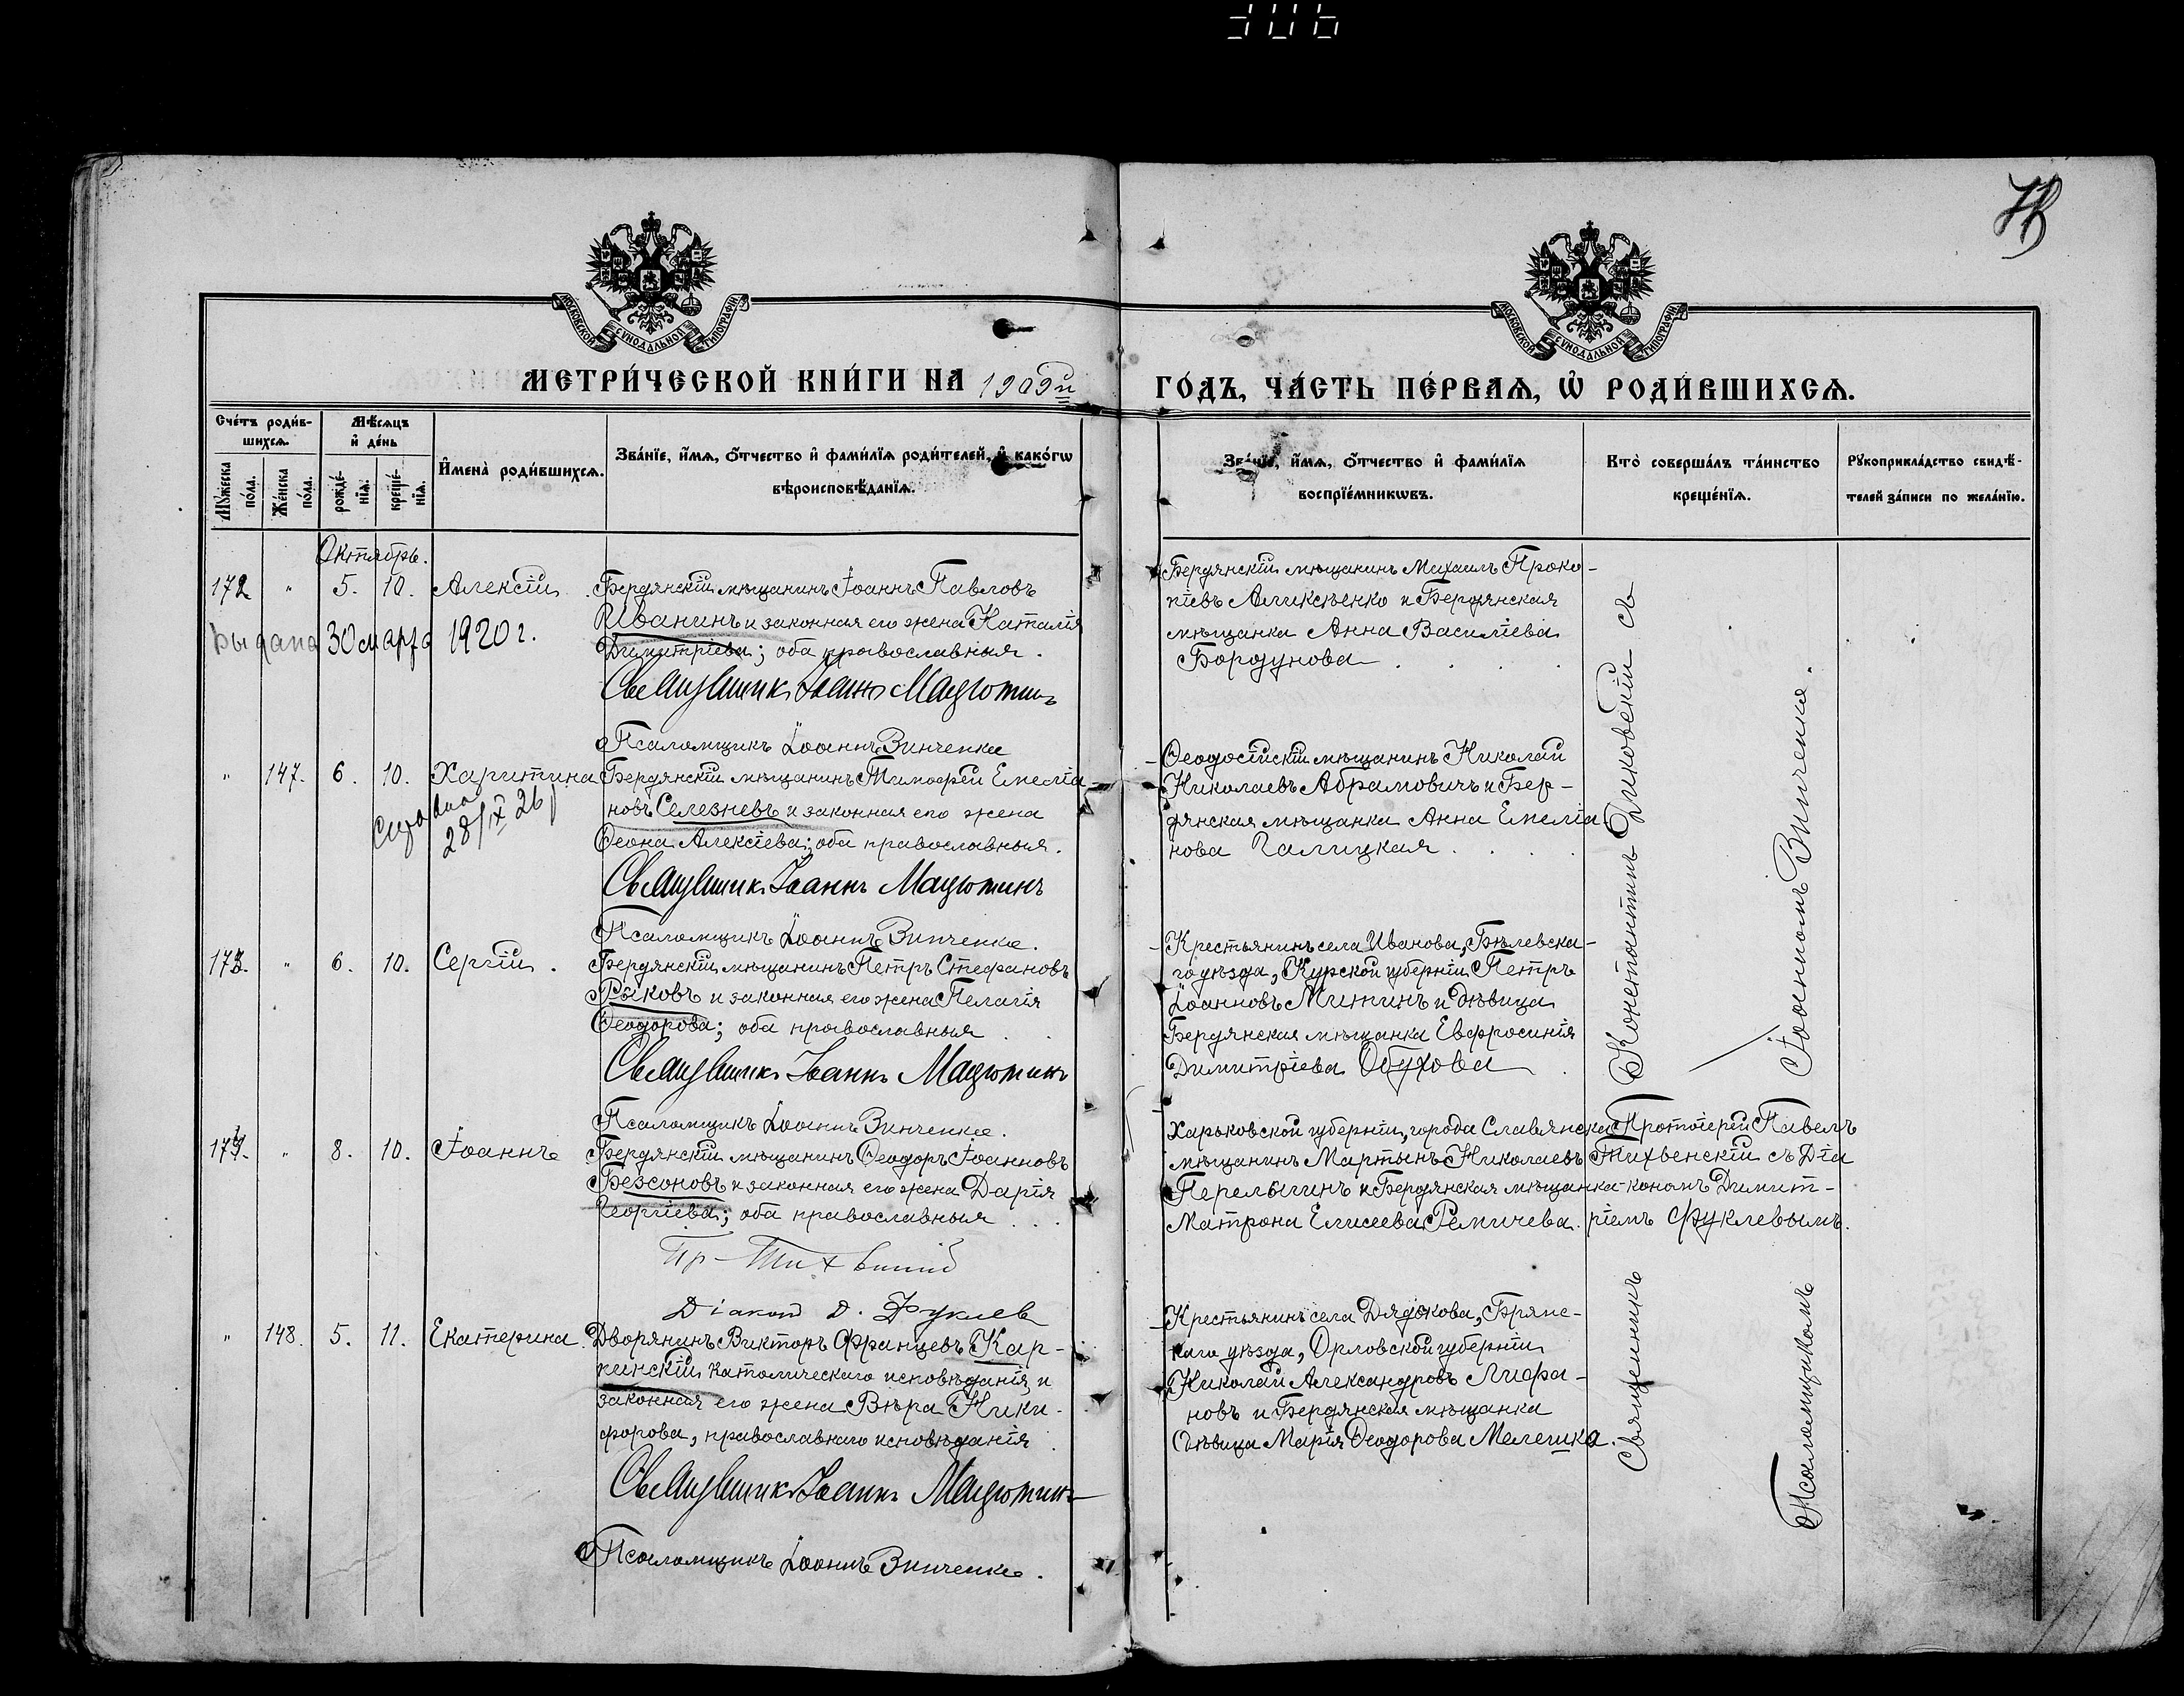 306
78
МОСКОВСКОЙ СѴНОДАЛЬНОЙ ТИПОГРАФІИ
МОСКОВСКОЙ СѴНОДАЛЬНОЙ ТИПОГРАФІИ
МЕТРИ́ЧЕСКОЙ КНИ́ГИ НА 1909й
ГО́ДЪ, ЧА́СТЬ ПЕ́РВАѦ, Ѡ҆ РОДИ́ВШИХСѦ.
Сче́тъ роди́в-
шихсѧ.
Мѣ́сѧцъ
и҆ де́нь
Мꙋ́жеска по́ла.
Же́нска по́ла.
рожде́-
нїѧ.
креще́-
нїѧ.
И҆мена̀ роди́вшихсѧ.
Зва́нїе, и҆́мѧ, ѻ҆́тчество и҆ фами́лїѧ роди́телей, и҆ како́гѡ
вѣроисповѣ́данїѧ.
Зва́нїе, и҆́мѧ, ѻ҆́тчество и҆ фами́лїѧ
воспрїе́мникѡвъ.
Кто̀ соверша́лъ та́инство
креще́нїѧ.
Рꙋкоприкла́дство свидѣ́-
телей за́писи по жела́нїю.
Октябрь.
172 " 5. 10. Алексій. Бердянскій мѣщанинъ Іоаннъ Павловъ
Иванинъ и законная его жена Наталія
Димитріева; оба православныя.
Выдана 30 марта 1920 г.
Священник Іоаннъ Мацютинъ
Псаломщикъ Іоаннъ Зинченко
Бердянскій мѣщанинъ Михаилъ Проко-
піевъ Аликсѣенко и Бердянская
мѣщанка Анна Василіева
Бордунова
" 147. 6. 10. Харитина Бердянскій мѣщанинъ Тимофей Емелія-
новъ Селезневъ и законная его жена
Ѳеона Алексіева; оба православныя.
28/IX 26
Священник Іоаннъ Мацютинъ
Псаломщикъ Іоаннъ Зинченко.
Ѳеодосійскій мѣщанинъ Николай
Николаевъ Абрамовичъ и Бер-
дянская мѣщанка Анна Емелія
нова Галицкая
173. " 6. 10. Сергій. Бердянскій мѣщанинъ Петръ Стефановъ
Рыковъ и законная его жена Пелагія
Ѳеодорова; оба православныя
Священник Іоаннъ Мацютинъ
Псаломщикъ Іоаннъ Зинченко.
Крестьянинъ села Иванова, Бѣлевска-
го уѣзда, Курской губерніи Петръ
Іоанновъ Митинъ и дѣвица
Бердянская мѣщанка Евфросинія
Димитріева Обухова
174. " 8. 10. Іоаннъ Бердянскій мѣщанинъ Ѳеодоръ Іоанновъ
Безсоновъ и законная его жена Дарія
Георгіева; оба православныя
Діакон Д. Фуклев
Харьковской губерніи, города Славянска
мѣщанинъ Мартынъ Николаевъ
Перелыгинъ и Бердянская мѣщанка
Матрона Елисеева Ремичева.
Протоіерей Павелъ
Тихвенскій съ Діа
кономъ Димит-
ріемъ Фуклевымъ.
" 148. 5. 11. Екатерина. Дворянинъ Викторъ Францевъ Кар-
пинскій католическаго исповѣданія, и
законная его жена Вѣра Ники-
форова, православнаго исповѣданія
Священник Іоаннъ Мацютинъ
Псаломщикъ Іоаннъ Зинченко.
Крестьянинъ села Дядкова, Брянс-
каго уѣзда, Орловской губерніи
Николай Александровъ Лифа-
новъ и Бердянская мѣщанка
дѣвица Марія Ѳеодорова Мелешка.
Священникъ Константинъ съ
Псаломщикомъ Іоанномъ Зинченко.